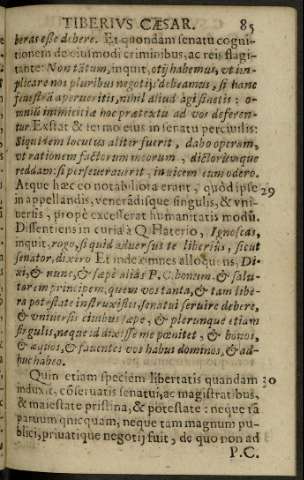 TIBERIVS CÆSAR. 85
beras esse debere. Et quondam senatu cogni-
tionem de eiusmodi criminibus, ac reis flagi-
tante: Non tātum, inquit, otij habemus, vt im-
plicare nos pluribus negotijs debeamus, si hanc
fenestrā aperueritis, nihil aliud agi sinetis: o-
mniū inimicitiæ hoc prætextu ad vos deferen-
tur. Exstat & sermo eius in senatu perciuilis:
Siquidem locutus aliter fuerit, dabo operam,
vt rationem factorum meorum, dictorumque
reddam: si perseuerauerit, inuicem eum odero.
Atque hæc eo notabiliora erant, quòd ipse 29
in appellandis, venerādisque singulis, & vni-
uersis, propè excesserat humanitatis modū.
Dissentiens in curia à Q. Haterio, Ignoscas,
inquit, rogo, si quid aduersus te liberius, sicut
senator, dixero. Et inde omnes alloquens, Di-
xi, & nunc, & sæpe aliàs P.C. bonum, & salu-
tarem principem, quem vos tanta, & tam libe-
ra potestate instruxistis, senatui seruire debere,
& vniuersis ciuibus sæpe, & plerunque etiam
singulis, neque id dixisse me pœnitet, & bonos,
& æquos, & fauentes vos habui dominos, & ad-
huc habeo.
Quin etiam speciem libertatis quandam 30
induxit, cōseruatis senatui, ac magistratibus,
& maiestate pristina, & potestate: neque tā
paruum quicquam, neque tam magnum pu-
blici, priuatique negotij fuit, de quo non ad
P.C.